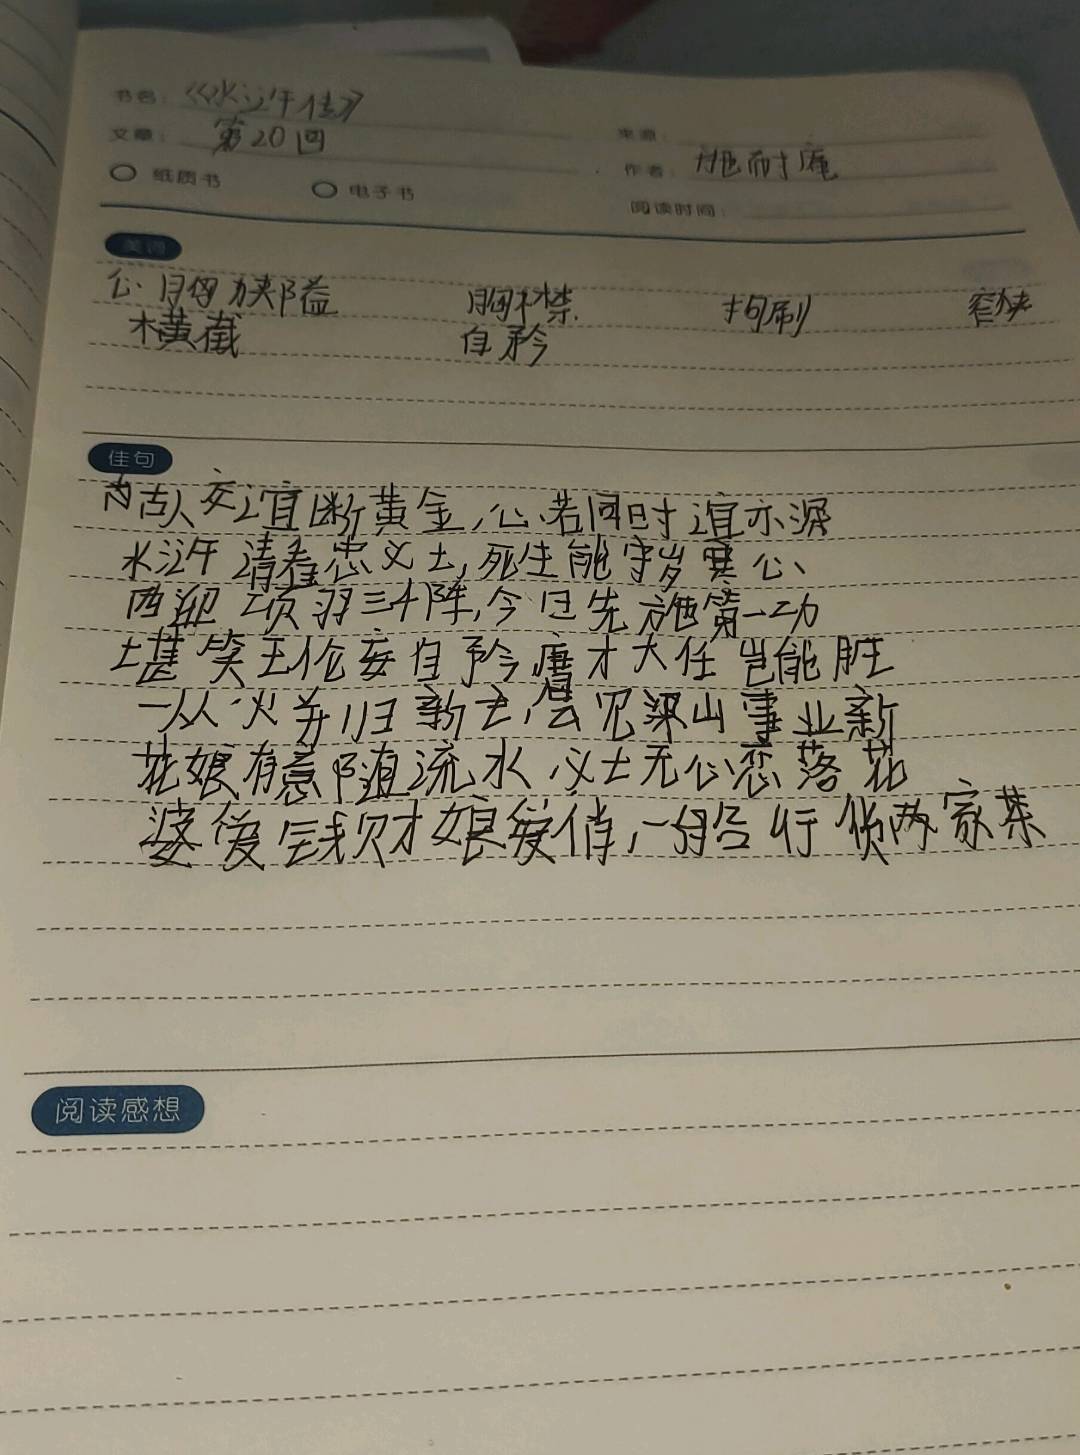 书名： 《水浒传》
文章： 第20回
来源：
作者： 施耐庵
纸质书 电子书
阅读时间：
美词
心胸狭隘 胸襟 拘刷 窄狭
横截 自矜
佳句
古人交谊断黄金,心若同时谊亦深
水浒请看忠义士,死生能守岁寒心
西迎项羽三千阵,今日先施第一功
堪笑王伦妄自矜庸才大任岂能胜
一从火并归新主,会见梁山事业新
花娘有意随流水,义士无心恋落花
婆爱钱财娘爱俏,一般行货两家茶
阅读感想